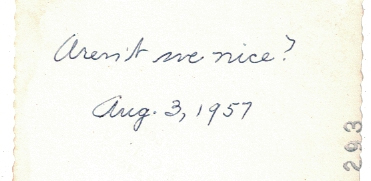 Aren't we nice?
Aug. 3, 1957
293